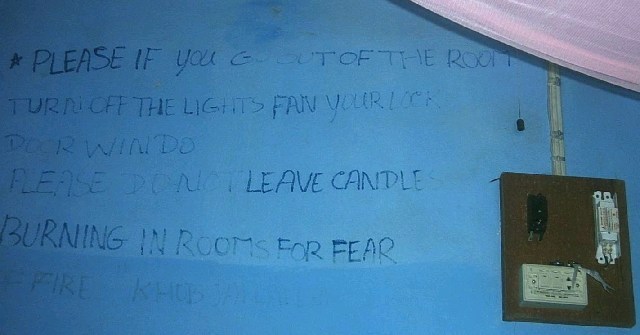 * PLEASE IF YOU GO OUT OF THE ROOM
TURN OFF THE LIGHTS FAN YOUR LOCK
DOOR WINDO
PLEASE DO NOT LEAVE CANDLES
BURNING IN ROOMS FOR FEAR
FIRE